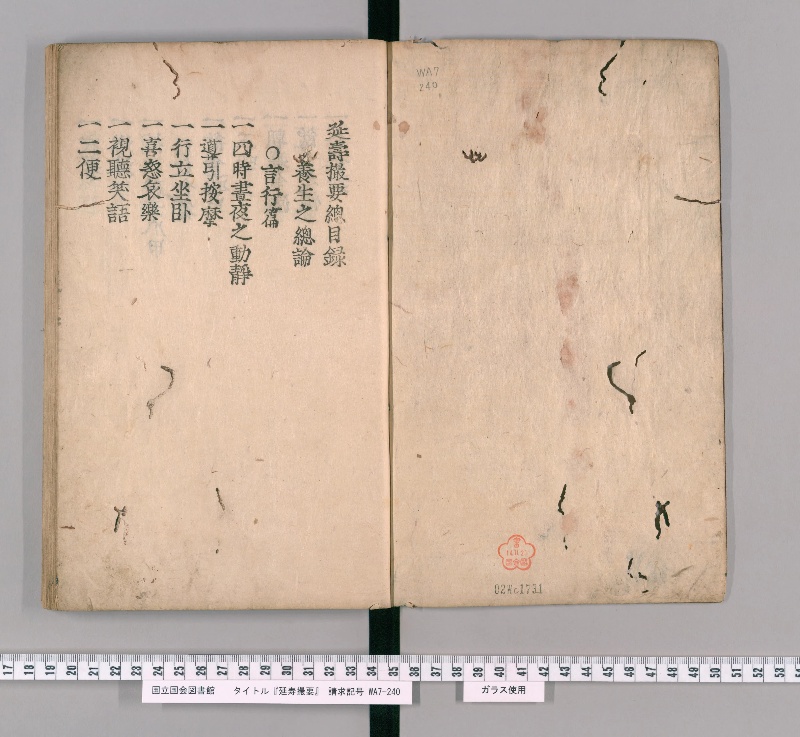 WA7
240
02Wc1731
延壽撮要總目録
養生之總論
○言行篇
一四時晝夜之動靜
一導引按摩
一行立坐臥
一喜怒哀樂
一視聽笑語
一二便
17 18 19 20 21 22 23 24 25 26 27 28 29 30 31 32 33 34 35 36 37 38 39 40 41 42 43 44 45 46 47 48 49 50 51 52 53
国立国会図書館 タイトル『延寿撮要』 請求記号 WA7-240
ガラス使用